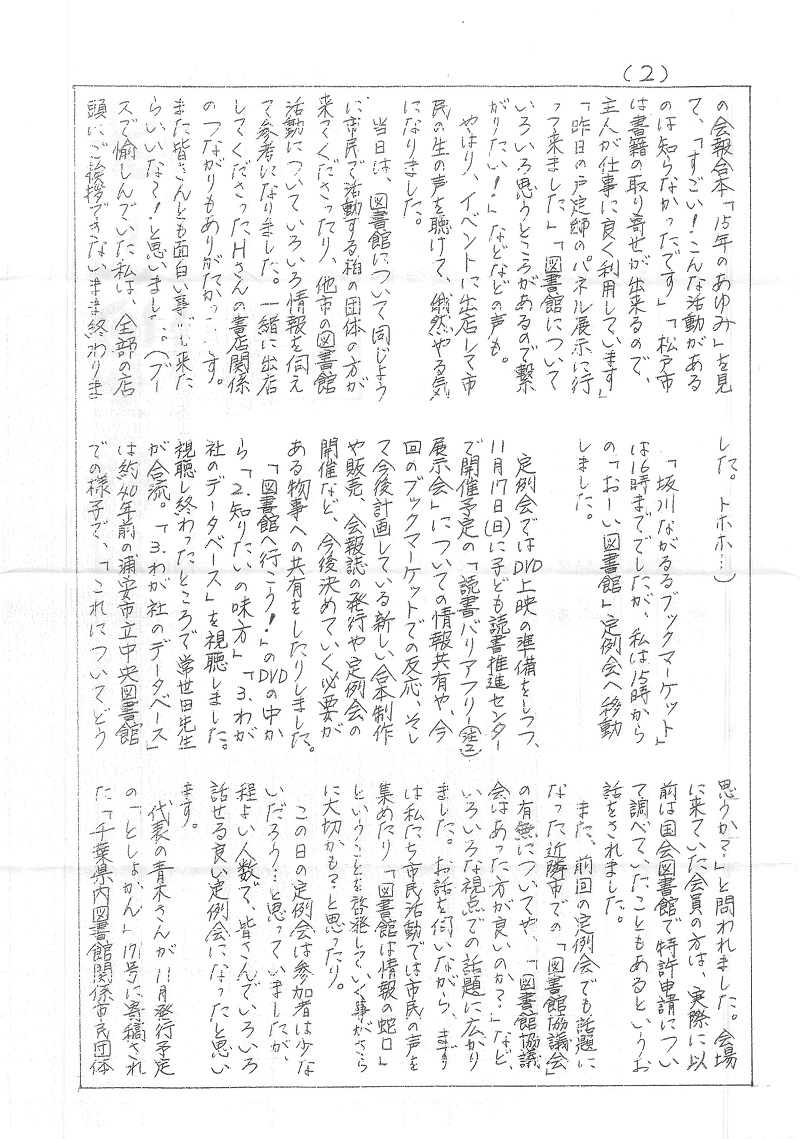 (2)
の会報合本「15年のあゆみ」を見
て、「すごい!こんな活動がある
のは知らなかったです」「松戸市
は書籍の取り寄せが出来るので、
主人が仕事に良く利用しています」
「昨日の戸定邸のパネル展示に行
って来ました」「図書館について
いろいろ思うところがあるので繋
がりたい!」などなどの声も。
やはり、イベントに出店して市
民の生の声を聴けて、俄然やる気
になりました。
当日は、図書館について同じよう
に市民で活動する柏の団体の方が
来てくださったり、他市の図書館
活動についていろいろ情報を伺え
て参考になりました。一緒に出店
してくださったHさんの書店関係
のつながりもありがたかったです。
また皆さんとも面白い事が出来た
らいいな~!と思いました。(ブー
スで愉しんでいた私は、全部の店
頭にご挨拶できないまま終わりま
した。トホホ…)
「坂川ながるるブックマーケット」
は16時まででしたが、私は15時から
の「おーい図書館」定例会へ移動
しました。
定例会ではDVD上映の準備をしつつ、
11月17日(日)に子ども読書推進センター
で開催予定の「読書バリアフリー(注2)
展示会」についての情報共有や、今
回のブックマーケットでの反応、そし
て今後計画している新しい合本制作
や販売、会報誌の発行や定例会の
開催など、今後決めていく必要が
ある物事への共有をしたりしました。
「図書館へ行こう!」のDVDの中か
ら「2.知りたいの味方」「3.わが
社のデータベース」を視聴しました。
視聴し終わったところで常世田先生
が合流。「3.わが社のデータベース」
は約40年前の浦安市立中央図書館
での様子で、「これについてどう
思うか?」と問われました。会場
に来ていた会員の方は、実際に以
前は国会図書館で特許申請につい
て調べていたこともあるというお
話をされました。
また、前回の定例会でも話題に
なった近隣市での「図書館協議会」
の有無についてや、「図書館協議
会はあった方が良いのか?」など、
いろいろな視点での話題に広がり
ました。お話を伺いながら、まず
は私たち市民活動では市民の声を
集めたり「図書館は情報の蛇口」
ということを啓発していく事がさら
に大切かも?と思ったり。
この日の定例会は参加者は少な
いだろう…と思っていましたが、
程よい人数で、皆さんでいろいろ
話せる良い定例会になったと思い
ます。
代表の青木さんが11月発行予定
の「としょかん」171号に寄稿され
た「千葉県内図書館関係市民団体